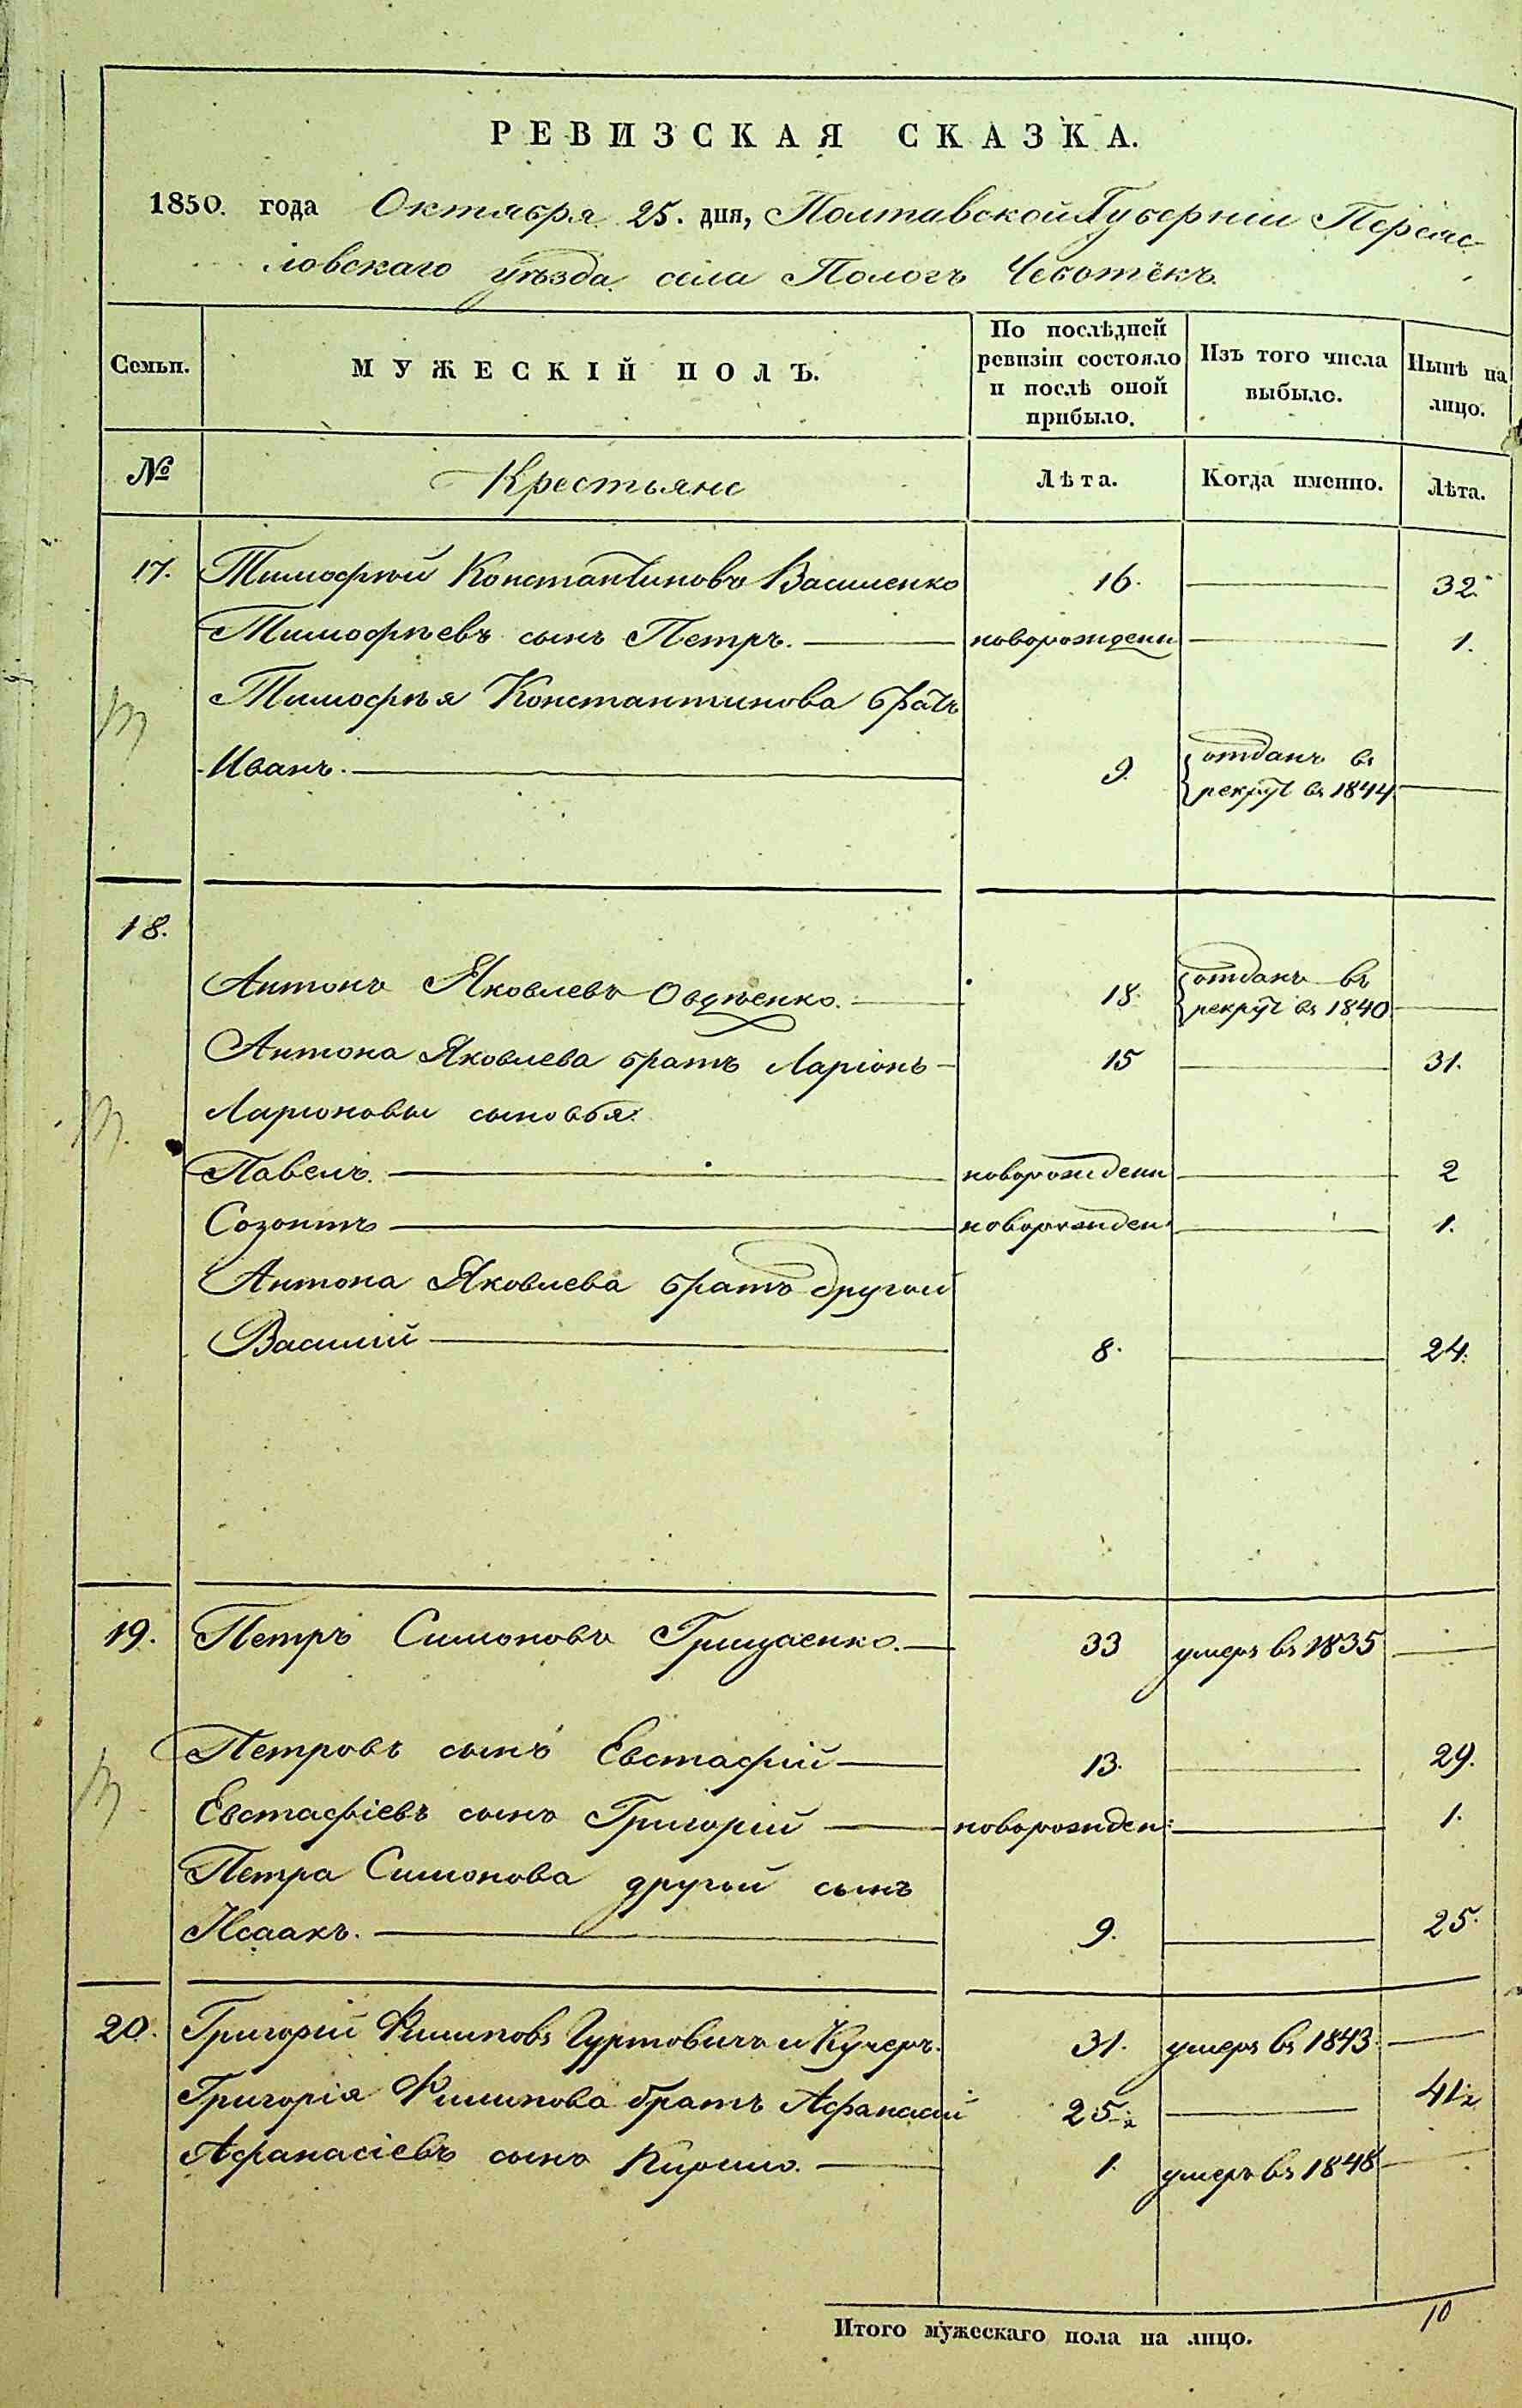 РЕВИЗСКАЯ СКАЗКА.
1850. года Октября 25. дня, Полтавской Губерніи Переяс-
ловскаго уѣзда села Пологъ Чеботёкъ.
Семьи. МУЖЕСКІЙ ПОЛЪ. По послѣдней ревизіи состояло и послѣ оной прибыло. Изъ того числа выбыло. Нынѣ на лицо.
№ Крестьяне Лѣта. Когда именно. Лѣта.
17. Тимофѣй Константиновъ Василенко 16. 32.
Тимофѣевъ сынъ Петръ. новорожденн 1.
Тимофѣя Константинова братъ
Иванъ. 9. отданъ въ
рекрут въ 1844
18.
Антонъ Яковлевъ Овдѣенко. 18. отданъ въ
рекрут въ 1840
Антона Яковлева братъ Ларіонъ 15 31.
Ларионовы сыновья:
Павелъ. новорожденн 2
Созонтъ новорожден: 1.
Антона Яковлева братъ другой
Василій 8. 24.
19. Петръ Симоновъ Грицаенко. 33 умеръ въ 1835
Петровъ сынъ Евстафій 13. 29.
Евстафіевъ сынъ Григорій новорожден: 1.
Петра Симонова другой сынъ
Исаакъ. 9. 25.
20. Григорій Филиповъ Гуртовичъ и Кучеръ. 31. умеръ въ 1843.
Григорія Филипова братъ Афанасій 25½ 41½
Афанасіевъ сынъ Кирило. 1. умеръ въ 1848
Итого мужескаго пола на лицо. 10